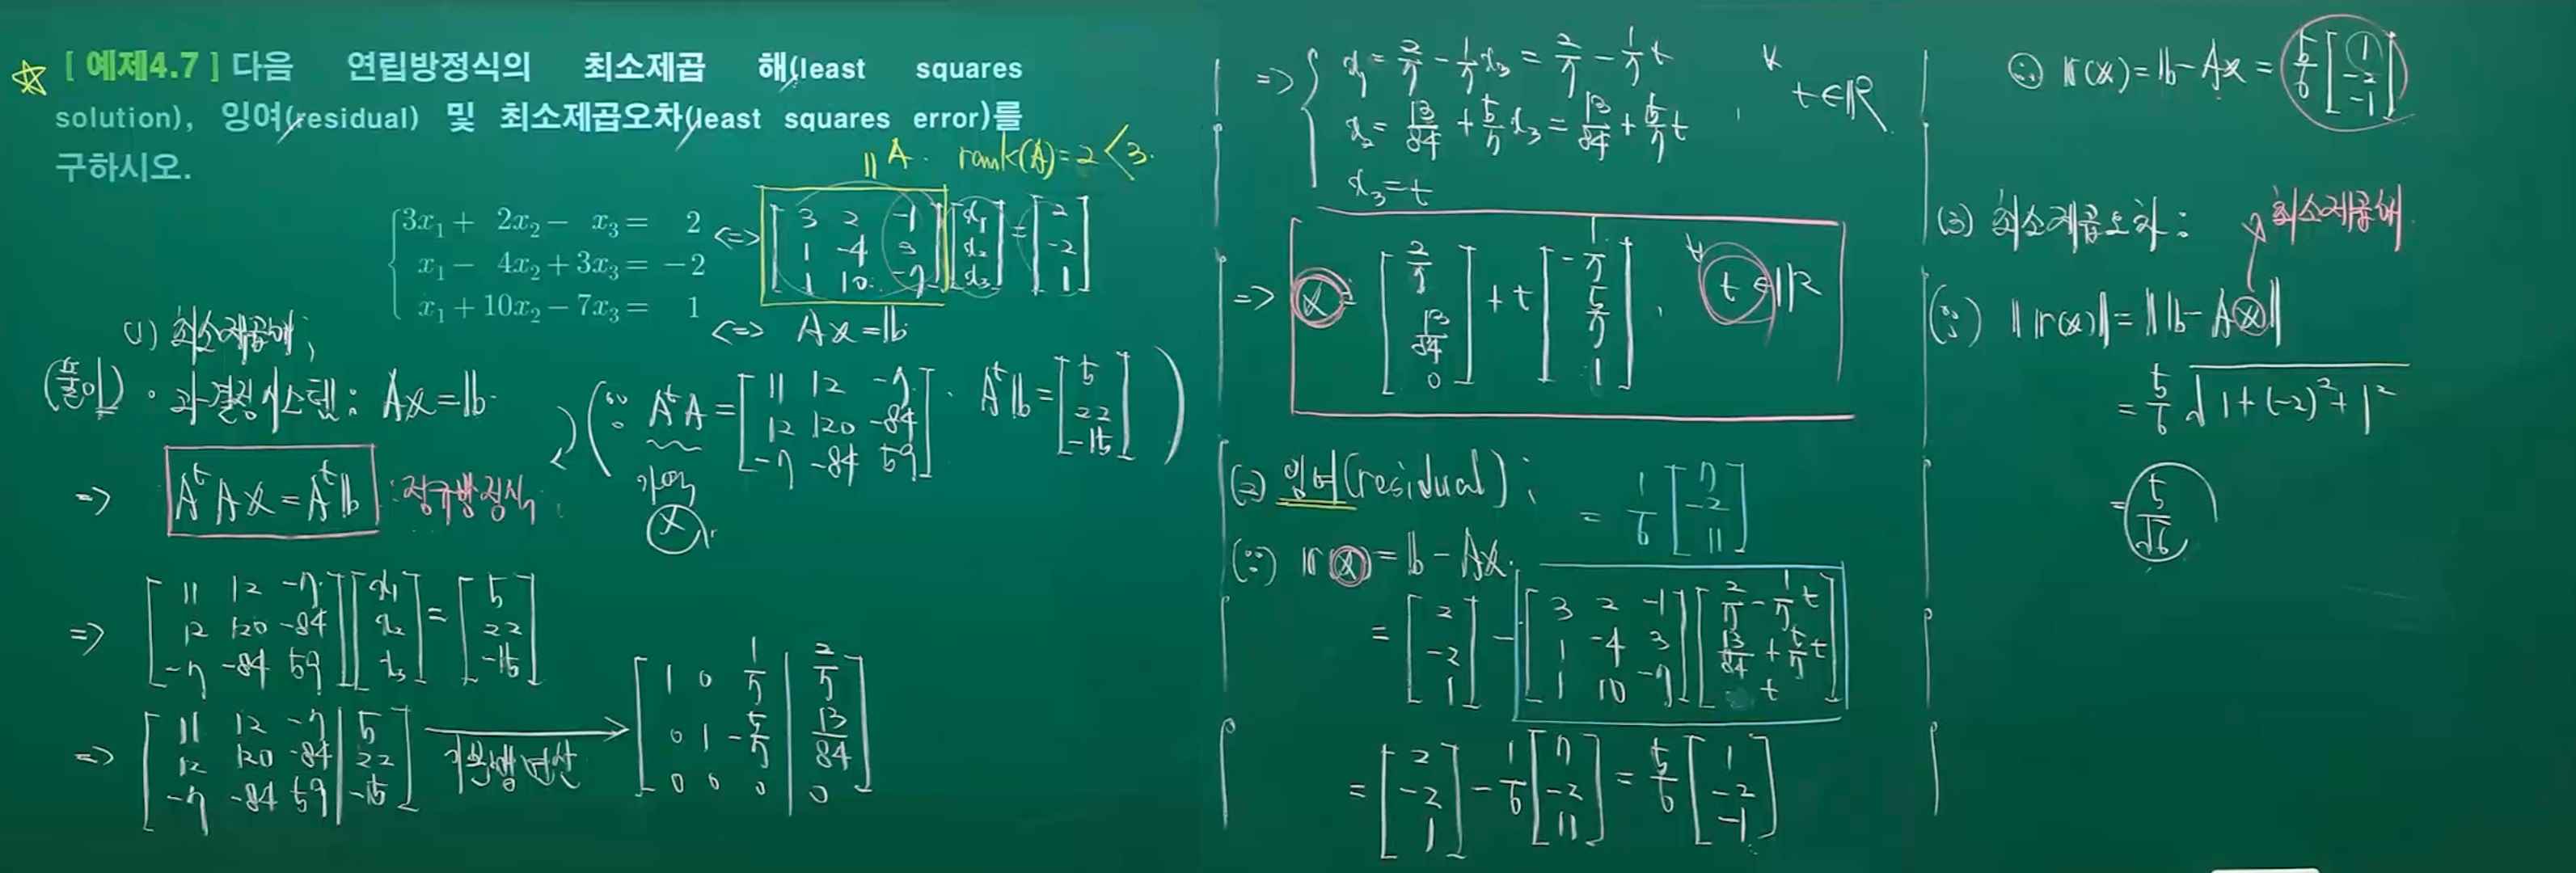 ☆ [ 예제4.7 ] 다음 연립방정식의 최소제곱 해(least squares
solution), 잉여(residual) 및 최소제곱오차(least squares error)를
구하시오.
|| A . rank(A)=2 < 3.
3x₁ + 2x₂ − x₃ = 2
x₁ − 4x₂ + 3x₃ = −2
x₁ + 10x₂ − 7x₃ = 1
<=> [3 2 -1; 1 -4 3; 1 10 -7] [x₁; x₂; x₃] = [2; -2; 1]
<=> Ax = b
(1) 최소제곱해 ;
(풀이) · 과결정시스템 : Ax = b
(∵ AᵗA = [11 12 -7; 12 120 -84; -7 -84 59] . Aᵗb = [5; 22; -15])
가역
X
=> AᵗAx = Aᵗb : 정규방정식
=> [11 12 -7; 12 120 -84; -7 -84 59] [x₁; x₂; x₃] = [5; 22; -15]
=> [11 12 -7 | 5; 12 120 -84 | 22; -7 -84 59 | -15] → [1 0 1/7 | 2/7; 0 1 -5/7 | 13/84; 0 0 0 | 0]
기본행연산
=> { x₁ = 2/7 - 1/7 x₃ = 2/7 - 1/7 t
x₂ = 13/84 + 5/7 x₃ = 13/84 + 5/7 t , ∀ t∈ℝ
x₃ = t
=> x = [2/7; 13/84; 0] + t [-1/7; 5/7; 1] , ∀ t∈ℝ
(2) 잉여(residual) ;
= 1/6 [7; -2; 11]
(∵) r(x) = b - Ax.
= [2; -2; 1] - [3 2 -1; 1 -4 3; 1 10 -7] [2/7 - 1/7 t; 13/84 + 5/7 t; t]
= [2; -2; 1] - 1/6 [7; -2; 11] = 5/6 [1; -2; -1]
∴ r(x) = b - Ax = 5/6 [1; -2; -1]
(3) 최소제곱오차 :
최소제곱해
(∵) ||r(x)|| = ||b - Ax||
= 5/6 √1+(-2)²+1²
= 5/√6